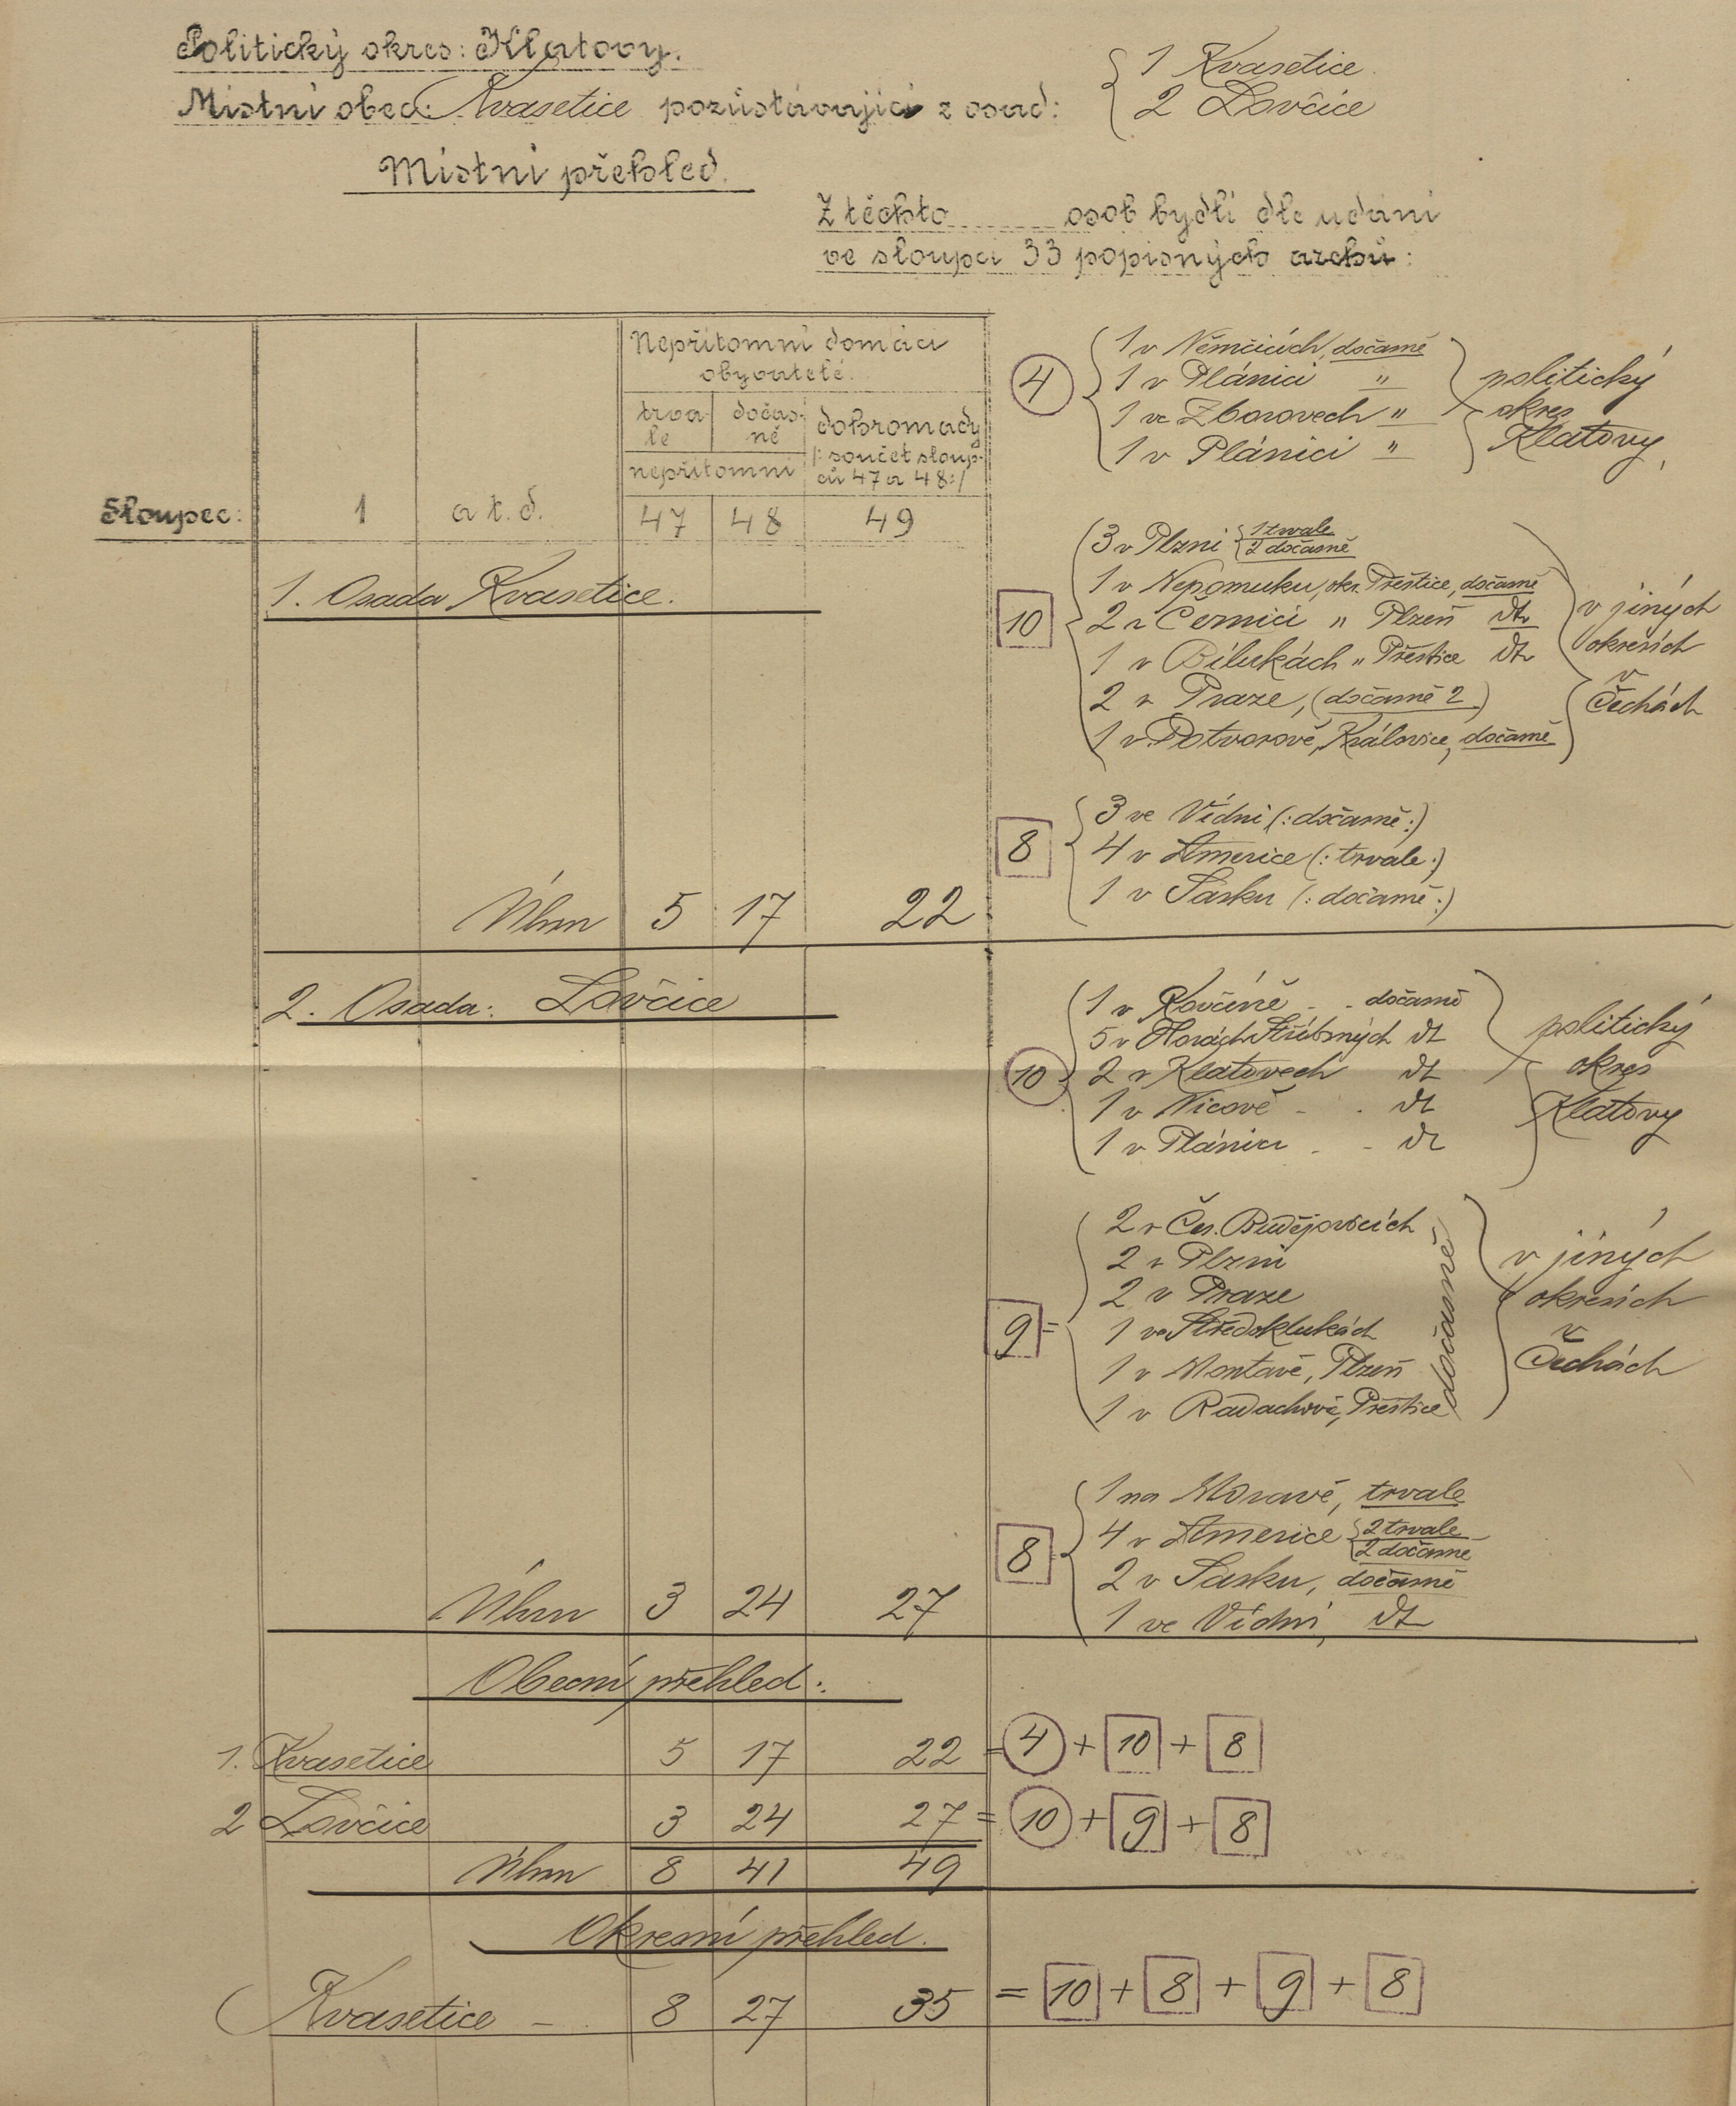 Politický okres: Klatovy.
Místní obec: Kvasetice pozůstávající z osad:
{ 1 Kvasetice
2 Lovčice
Místní přehled.
Z těchto ........ osob bydlí dle udání
ve sloupci 33 popisných archů:
Nepřítomní domácí
obyvatelé.
trva-
le
dočas-
ně
dohromady
/: součet sloup-
ců 47 a 48:/
nepřítomní
Sloupec: 1 a t. d. 47 48 49
1. Osada Kvasetice.
4
1 v Němčicích, dočasně
1 v Plánici "
1 ve Zborovech "
1 v Plánici "
politický
okres
Klatovy
10
3 v Plzni { 1 trvale
2 dočasně
1 v Nepomuku, okr. Přeštice, dočasně
2 v Černici " Plzeň dto
1 v Bílukách " Přeštice dto
2 v Praze, (dočasně 2)
1 v Potvorově, Královice, dočasně
v jiných
okresích
v
Čechách
8
3 ve Vídni (: dočasně :)
4 v Americe (: trvale :)
1 v Sasku (: dočasně :)
Úhrn 5 17 22
2. Osada: Lovčice
10
1 v Kovčíně - - dočasně
5 v Horách Stříbrných dt
2 v Klatovech dt
1 v Nicově - - dt
1 v Plánici - - dt
politický
okres
Klatovy
9 =
2 v Čes. Budějovicích
2 v Plzni
2 v Praze
1 ve Středoklukách
1 v Mantavě, Plzeň
1 v Radachově, Přeštice
dočasně
v jiných
okresích
v
Čechách
8
1 na Moravě, trvale
4 v Americe { 2 trvale
2 dočasně
2 v Sasku, dočasně
1 ve Vídni, dt
Úhrn 3 24 27
Obecní přehled:
1. Kvasetice 5 17 22 = 4 + 10 + 8
2 Lovčice 3 24 27 = 10 + 9 + 8
Úhrn 8 41 49
Okresní přehled.
Kvasetice - 8 27 35 = 10 + 8 + 9 + 8